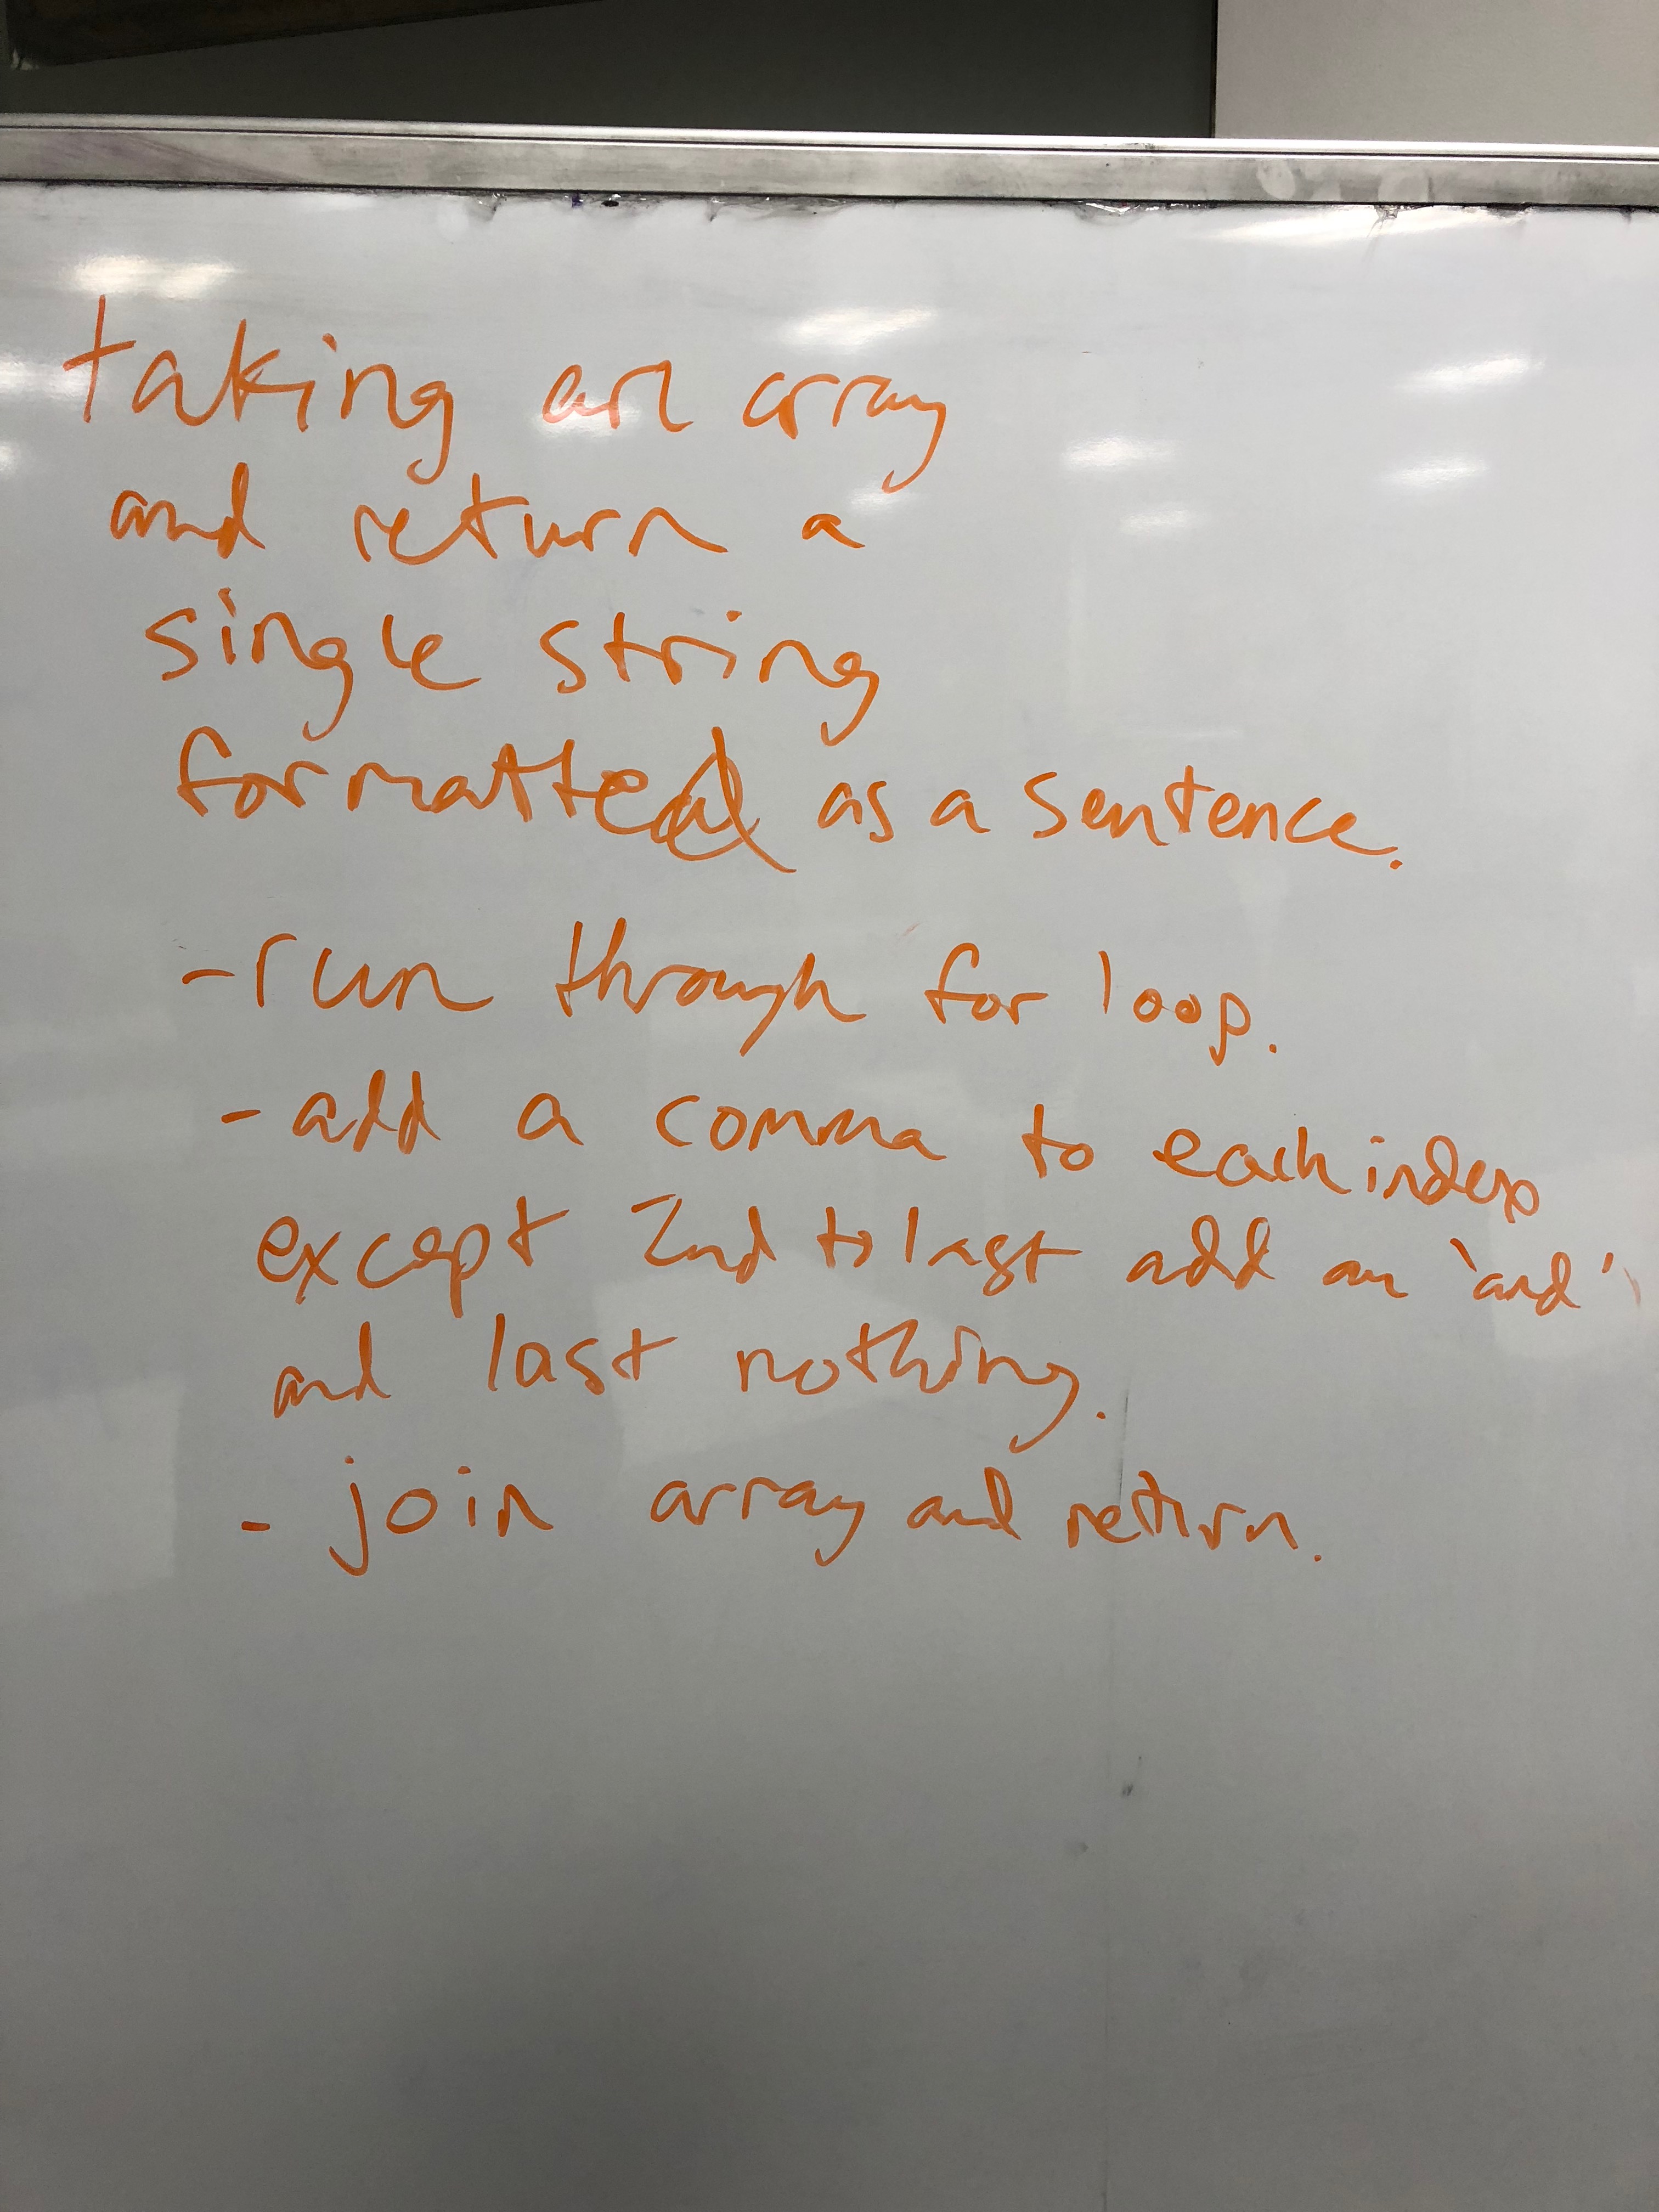 taking an array
and return a
single string
formatted as a sentence.
- run through for loop.
- add a comma to each index
except 2nd to last add an 'and'
and last nothing.
- join array and return.